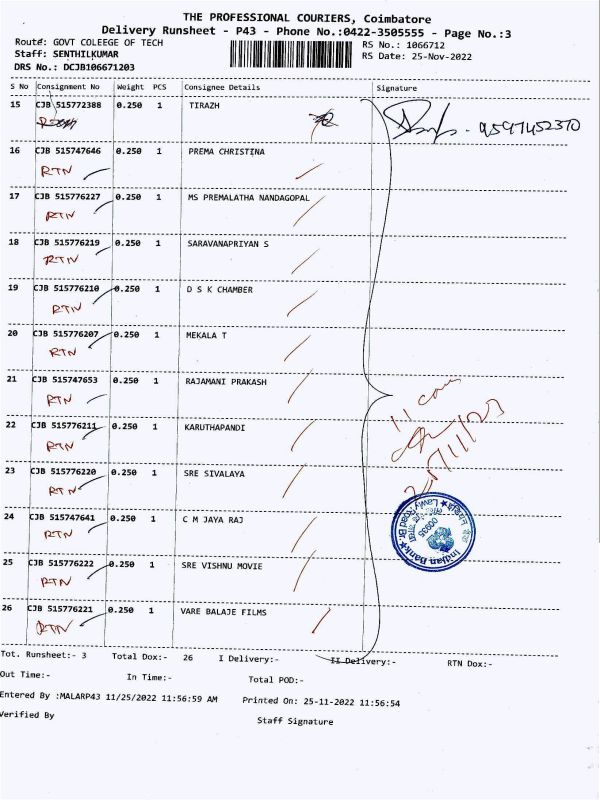 THE PROFESSIONAL COURIERS, Coimbatore
Delivery Runsheet - P43 - Phone No.:0422-3505555 - Page No.:3
Route: GOVT COLEEGE OF TECH
RS No.: 1066712
Staff: SENTHILKUMAR
RS Date: 25-Nov-2022
DRS No.: DCJB106671203
S No Consignment No Weight PCS Consignee Details Signature
15 CJB 515772388 0.250 1 TIRAZH
9597452370
16 CJB 515747646 0.250 1 PREMA CHRISTINA
RTN
17 CJB 515776227 0.250 1 MS PREMALATHA NANDAGOPAL
RTN
18 CJB 515776219 0.250 1 SARAVANAPRIYAN S
RTN
19 CJB 515776210 0.250 1 D S K CHAMBER
RTN
20 CJB 515776207 0.250 1 MEKALA T
RTN
21 CJB 515747653 0.250 1 RAJAMANI PRAKASH
RTN
11 cons
22 CJB 515776211 0.250 1 KARUTHAPANDI
RTN
23 CJB 515776220 0.250 1 SRE SIVALAYA
RTN
24 CJB 515747641 0.250 1 C M JAYA RAJ
RTN
Indian Bank
00935
Lawly Road Br.
25 CJB 515776222 0.250 1 SRE VISHNU MOVIE
RTN
26 CJB 515776221 0.250 1 VARE BALAJE FILMS
RTN
Tot. Runsheet:- 3 Total Dox:- 26 I Delivery:- II Delivery:- RTN Dox:-
Out Time:- In Time:- Total POD:-
Entered By :MALARP43 11/25/2022 11:56:59 AM Printed On: 25-11-2022 11:56:54
Verified By
Staff Signature